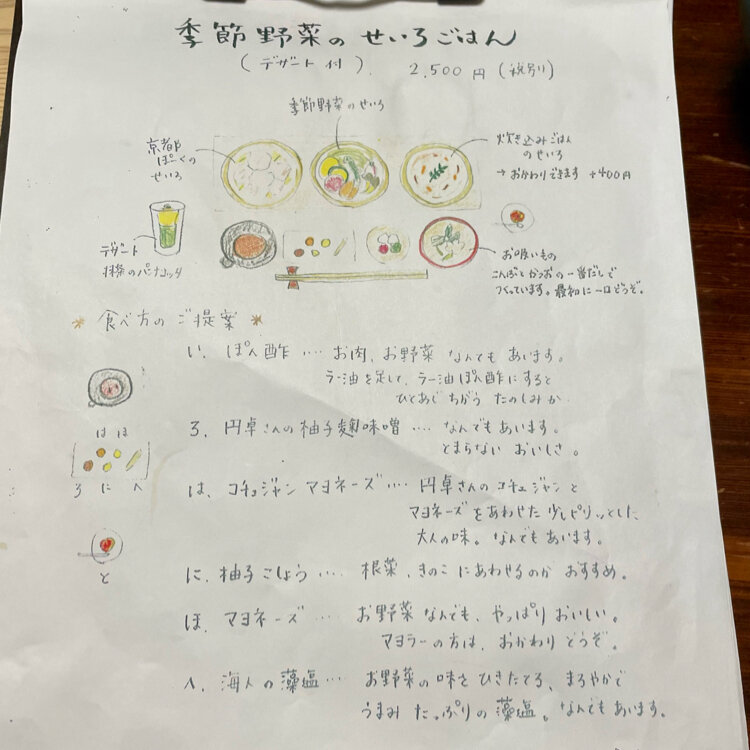 季節野菜のせいろごはん
(デザート付) 2,500円(税別)
季節野菜のせいろ
京都
ぽーくの
せいろ
炊き込みごはん
のせいろ
→おかわりできます +400円
デザート
抹茶のパンナコッタ
お吸いもの
こんぶとかつおの一番だしで
つくっています。最初に一口どうぞ。
*食べ方のご提案*
い、ぽん酢‥‥お肉、お野菜なんでもあいます。
ラー油を足して、ラー油ぽん酢にすると
ひとあじちがうたのしみか
ろ、円卓さんの柚子麹味噌‥‥なんでもあいます。
とまらないおいしさ。
はほ
ろにへ
は、コチュジャンマヨネーズ‥‥円卓さんのコチュジャンと
マヨネーズをあわせた少しピリッとした、
大人の味。なんでもあいます。
と
に、柚子ごしょう‥‥根菜、きのこにあわせるのがおすすめ。
ほ、マヨネーズ‥‥お野菜なんでも、やっぱりおいしい。
マヨラーの方は、おかわりどうぞ。
へ、海人の藻塩‥‥お野菜の味をひきたてる、まろやかで
うまみたっぷりの藻塩。なんでもあいます。